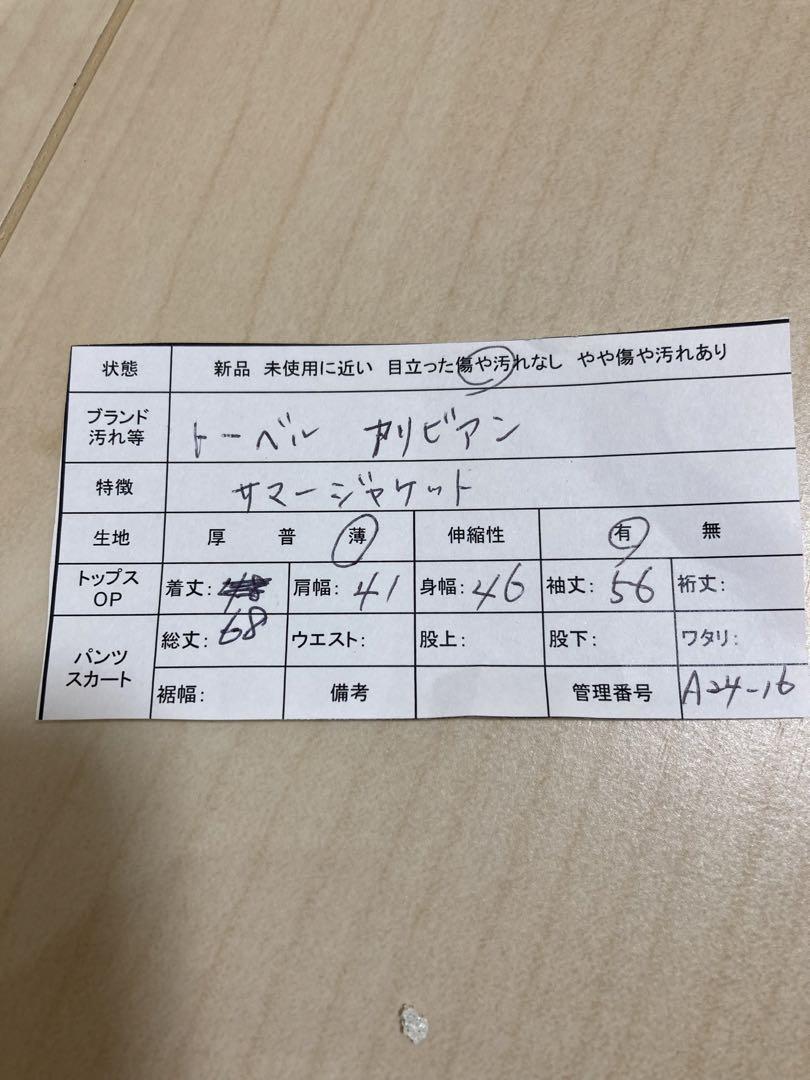 状態 新品 未使用に近い 目立った傷や汚れなし やや傷や汚れあり
ブランド
汚れ等 トーベル カリビアン
特徴 サマージャケット
生地 厚 普 薄 伸縮性 有 無
トップス
OP 着丈: 肩幅: 41 身幅: 46 袖丈: 56 裄丈:
68
パンツ
スカート 総丈: ウエスト: 股上: 股下: ワタリ:
裾幅: 備考 管理番号 A24-16